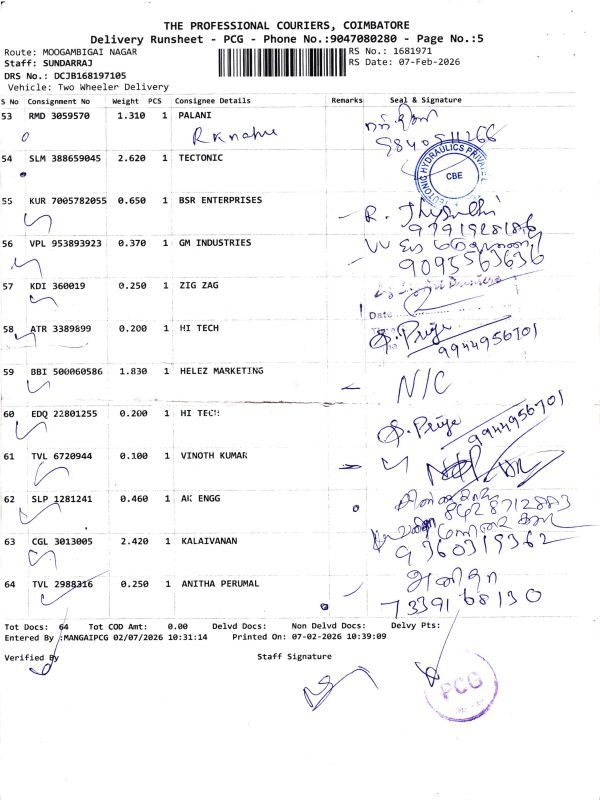 THE PROFESSIONAL COURIERS, COIMBATORE
Delivery Runsheet - PCG - Phone No.:9047080280 - Page No.:5
Route: MOOGAMBIGAI NAGAR RS No.: 1681971
Staff: SUNDARRAJ RS Date: 07-Feb-2026
DRS No.: DCJB168197105
Vehicle: Two Wheeler Delivery
S No Consignment No Weight PCS Consignee Details Remarks Seal & Signature
53 RMD 3059570 1.310 1 PALANI
54 SLM 388659045 2.620 1 TECTONIC
TEUTONIC HYDRAULICS PRIVATE
CBE
55 KUR 7005782055 0.650 1 BSR ENTERPRISES
56 VPL 953893923 0.370 1 GM INDUSTRIES
9095563636
57 KDI 360019 0.250 1 ZIG ZAG
Date
58 ATR 3389899 0.200 1 HI TECH S. Priya
9944956701
59 BBI 500060586 1.830 1 HELEZ MARKETING N/C
60 EDQ 22801255 0.200 1 HI TECH S. Priya 9944956701
61 TVL 6720944 0.100 1 VINOTH KUMAR
62 SLP 1281241 0.460 1 AK ENGG
8428712883
63 CGL 3013005 2.420 1 KALAIVANAN
9360319362
64 TVL 2988316 0.250 1 ANITHA PERUMAL அனிதா
7339168130
Tot Docs: 64 Tot COD Amt: 0.00 Delvd Docs: Non Delvd Docs: Delvy Pts:
Entered By :MANGAIPCG 02/07/2026 10:31:14 Printed On: 07-02-2026 10:39:09
Verified By Staff Signature
PCG